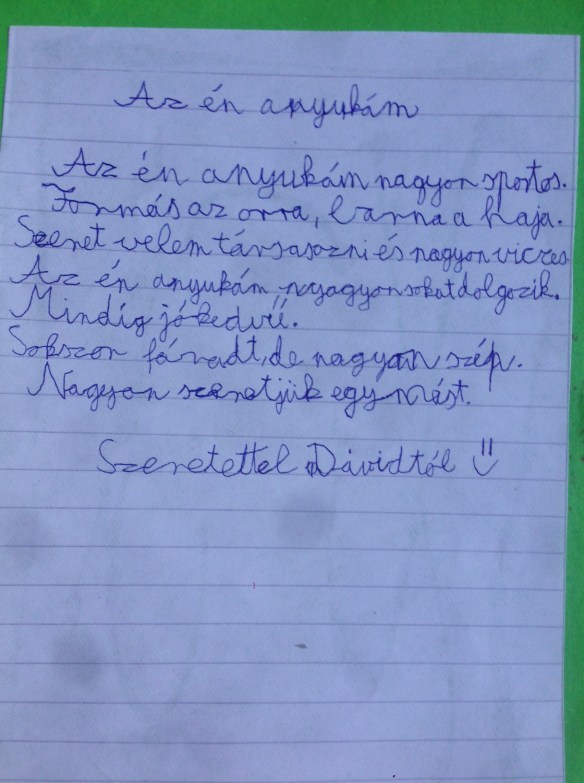 Az én anyukám
Az én anyukám nagyon sportos.
Formás az orra, barna a haja.
Szeret velem társasozni és nagyon vicces
Az én anyukám nyagyon sokat dolgozik.
Mindig jókedvű.
Sokszor fáradt, de nagyon szép.
Nagyon szeretjük egymást.
Szeretettel Dávidtól